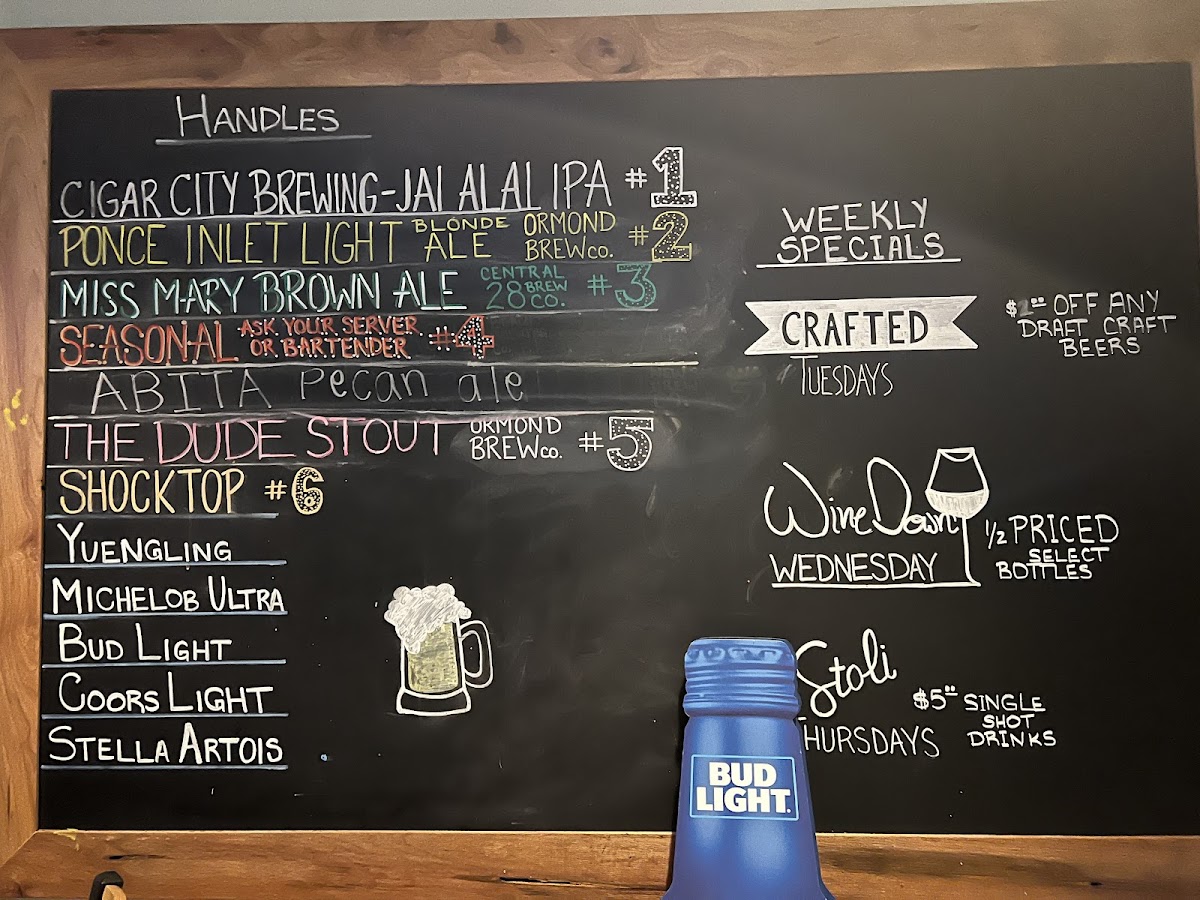 HANDLES
CIGAR CITY BREWING-JAI ALAI IPA #1
PONCE INLET LIGHT BLONDE ALE ORMOND BREW CO. #2
MISS MARY BROWN ALE CENTRAL 28 BREW CO. #3
SEASONAL ASK YOUR SERVER OR BARTENDER #4
ABITA Pecan ale
THE DUDE STOUT ORMOND BREW CO. #5
SHOCKTOP #6
YUENGLING
MICHELOB ULTRA
BUD LIGHT
COORS LIGHT
STELLA ARTOIS
WEEKLY
SPECIALS
CRAFTED
TUESDAYS
OFF ANY
DRAFT CRAFT
BEERS
Wine Down
WEDNESDAY
1/2 PRICED
SELECT
BOTTLES
Stoli
THURSDAYS
$5.00 SINGLE
SHOT
DRINKS
BUD
LIGHT.